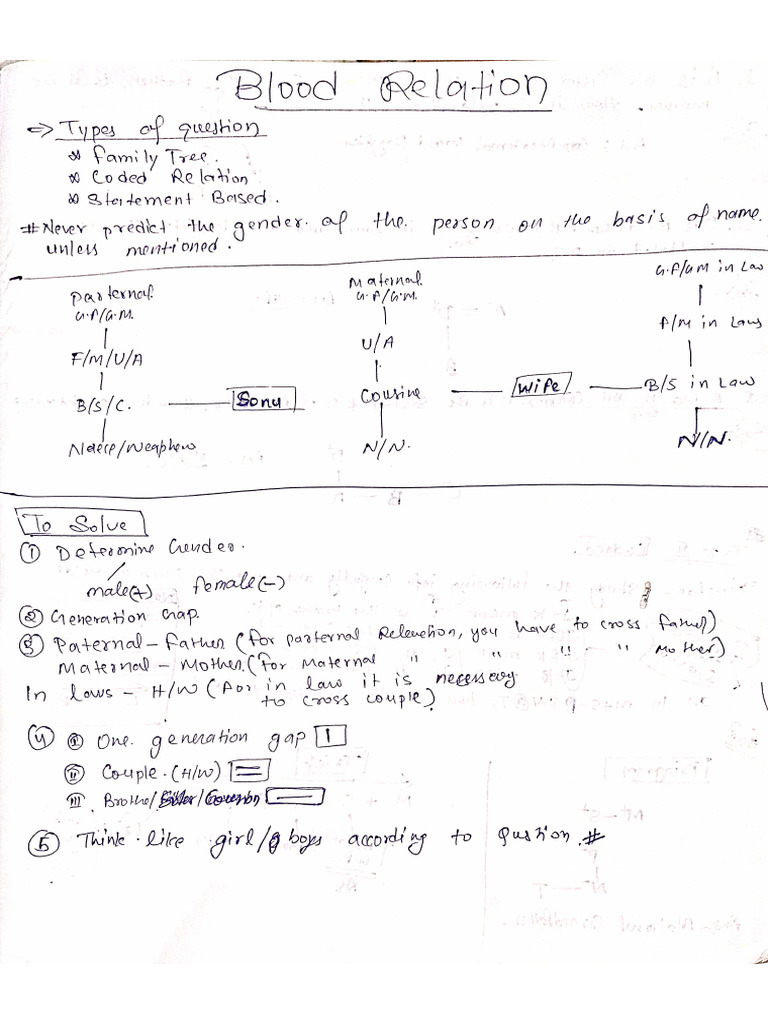 Blood Relation
=> Types of question
* Family Tree.
* Coded Relation
* Statement Based.
# Never predict the gender of the person on the basis of name
unless mentioned.
Parternal
G.F/G.M.
F/M/U/A
B/S/C.
Sonu
Niece/Neaphew
Maternal
G.F/G.M.
U/A
Cousine
N/N.
Wife
G.F/GM in Law
F/M in Laws
B/S in Law
N/N.
To Solve
① Determine Gender.
male(+) female(-)
② Generation Gap.
③ Paternal - Father (for parternal Relenction, you have to cross father)
Maternal - Mother (for Maternal " " " " Mother)
In laws - H/W (for in law it is necessary
to cross couple)
④ ① One generation gap |
② Couple. (H/W) =
III Brothe/Sister/ —
⑤ Think like girl/ boys according to qustion #